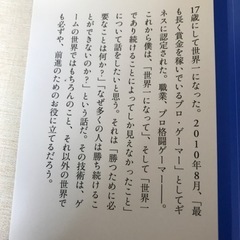 17歳にして世界一になった。2010年8月、「最
も長く賞金を稼いでいるプロ・ゲーマー」としてギ
ネスに認定された。職業、プロ格闘ゲーマー。
これから僕は、「世界一になって、そして「世界一
であり続けることによってしか見えなかったこと」
について話をしたいと思う。それは「勝つために必
要なことは何か？」「なぜ多くの人は勝ち続けるこ
とができないのか？」という話だ。その技術は、ゲー
ムの世界ではもちろんのこと、それ以外の世界で
も必ずや、前進のためのお役に立てるだろう。